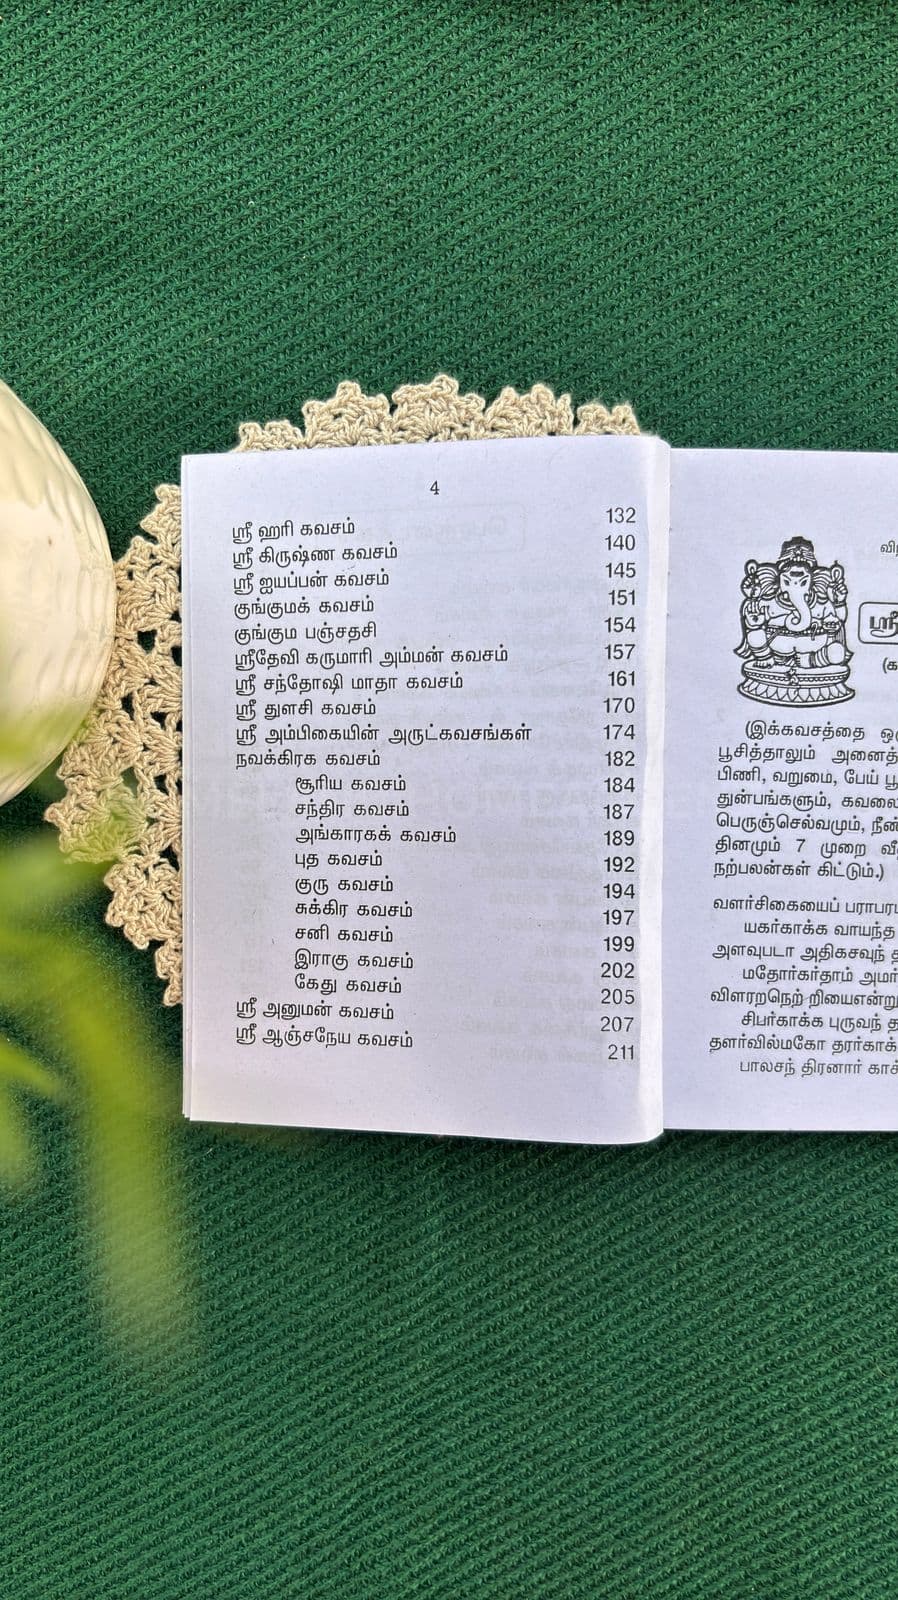 4
ஸ்ரீ ஹரி கவசம் 132
ஸ்ரீ கிருஷ்ண கவசம் 140
ஸ்ரீ ஐயப்பன் கவசம் 145
குங்குமக் கவசம் 151
குங்கும பஞ்சதசி 154
ஸ்ரீதேவி கருமாரி அம்மன் கவசம் 157
ஸ்ரீ சந்தோஷி மாதா கவசம் 161
ஸ்ரீ துளசி கவசம் 170
ஸ்ரீ அம்பிகையின் அருட்கவசங்கள் 174
நவக்கிரக கவசம் 182
சூரிய கவசம் 184
சந்திர கவசம் 187
அங்காரகக் கவசம் 189
புத கவசம் 192
குரு கவசம் 194
சுக்கிர கவசம் 197
சனி கவசம் 199
இராகு கவசம் 202
கேது கவசம் 205
ஸ்ரீ அனுமன் கவசம் 207
ஸ்ரீ ஆஞ்சநேய கவசம் 211
ஸ்ரீ
(இக்கவசத்தை
பூசித்தாலும் அனைத்
பிணி, வறுமை, பேய்
துன்பங்களும், கவலை
பெருஞ்செல்வமும், நீண்
தினமும் 7 முறை
நற்பலன்கள் கிட்டும்.)
வளர்சிகையைப் பராபர
யகர்காக்க வாயந்த
அளவுபடா அதிகசவுந்
மதோர்கர்தாம் அமர்
விளரறநெற் றியைஎன்று
சிபர்காக்க புருவந்
தளர்வில்மகோ தரர்காக்
பாலசந் திரனார்